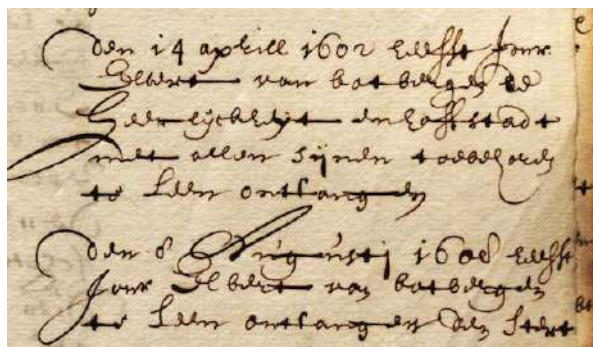 den 14 aprill 1602 heefft Jonr
Elbert van botbergen de
heerlijckheijt en hoffstadt
met allen sijnen toebehoren
te leen ontfangen
den 8 Augustij 1608 heefft
Jonr Elbert van botbergen
te leen ontfangen den